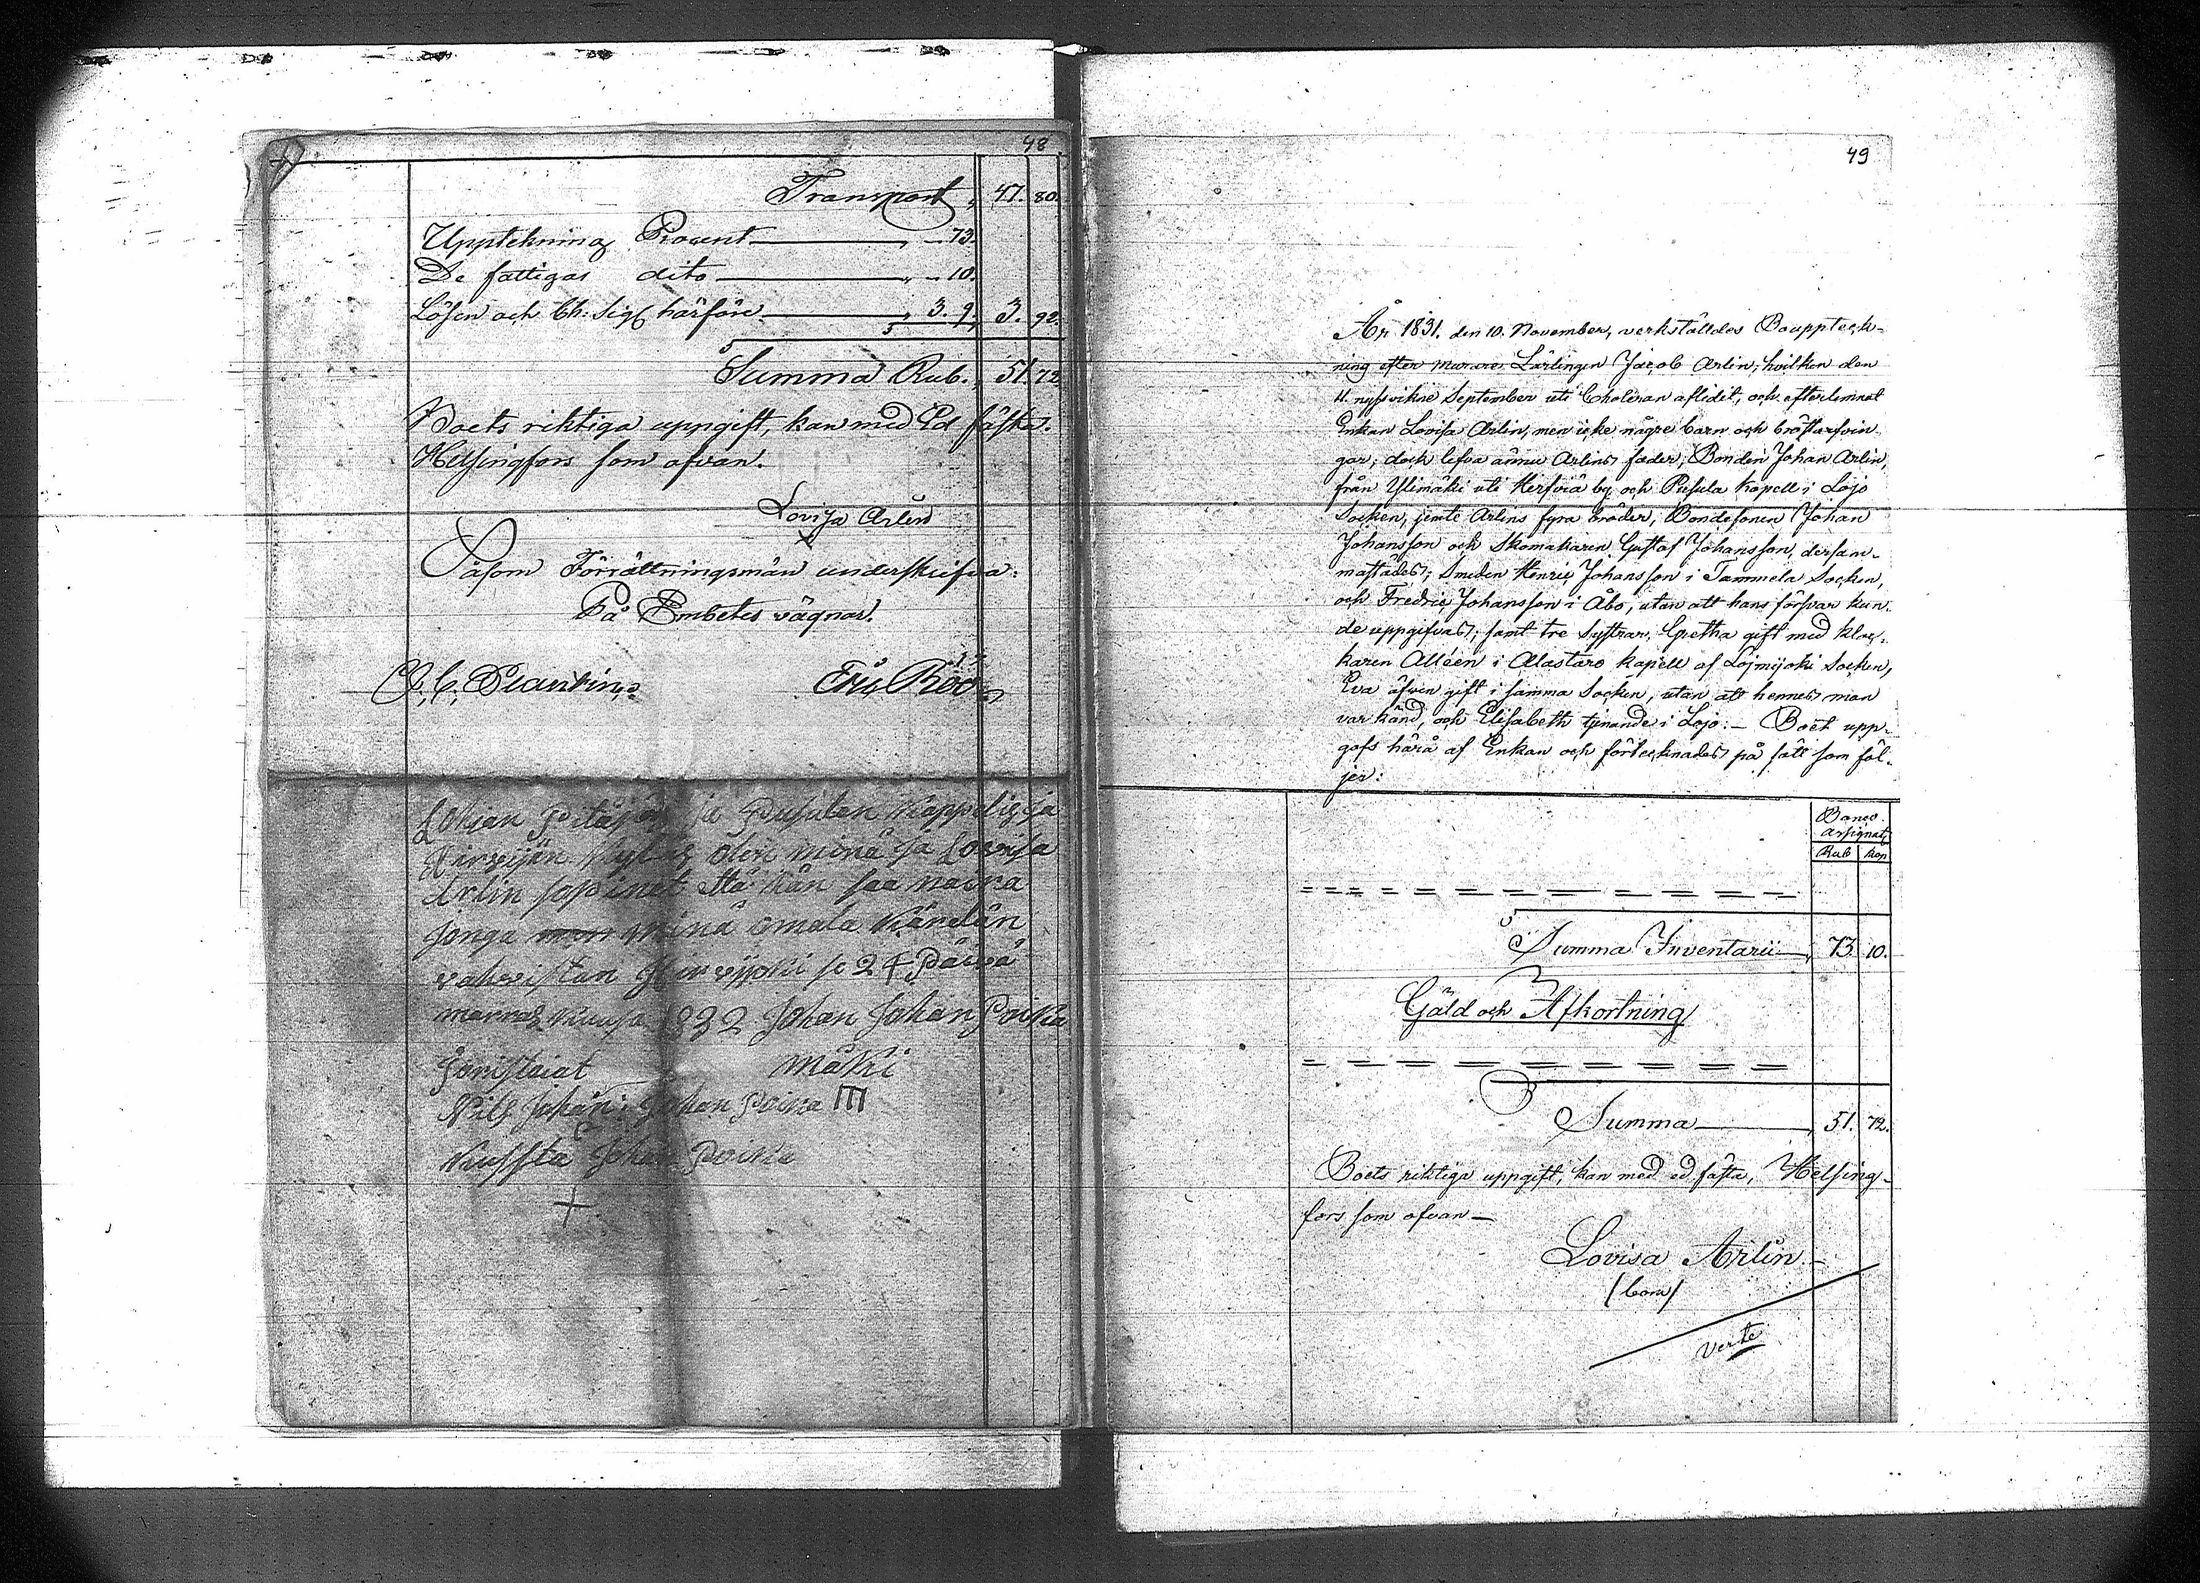 48
Transport 47. 80.
Upptekning Procent — " — 73.
De fattigas dito — " — 10.
Lösen och Ch: Sig: härföre — " 3. 9. 3. 92.
Summa Rub. 51. 72
Boets riktiga uppgift, kan med Ed fästa.
Helsingfors som ofvan.
Lovisa Arlin
x
Såsom Förrättningsmän underskrifva:
På Embetes vägnar.
Eric
Lohjan Pitäjän ja Pusulan Kappelissa
Kylas olen minä ja Lovisa
Arlin sopinet että hän saa naira
jonga minä omala Käredän
vahvistan se 24 Päivä
marras kuusa 1832 Johan Johan Poika
Mäki
Nils Johan Johan Poika III
Kussta Johan Poika
+
49
År 1831. den 10. November, verkställdes Bouppteck-
ning efter murare Lärlingen Jacob Arlin, hvilken den
11. nyssvikne September uti Choleran aflidit, och efterlemnat
Enkan Lovisa Arlin, men icke några barn och bröstarfvin-
gar; dock lefva ännu Arlins fader, Bonden Johan Arlin,
från Ylimäki uti Hirfviä by och Pusula Kapell i Lojo
Socken, jemte Arlins fyra bröder, Bondesonen Johan
Johansson och Skomakaren Gustaf Johansson, dersam-
mastädes; Smeden Henric Johansson i Tammela Socken,
och Fredric Johansson i Åbo, utan att hans försvar kun-
de uppgifvas; samt tre Systrar, Gretha gift med kloc-
karen Alléen i Alastaro kapell af Lojmijoki Socken,
Eva äfven gift i samma Socken, utan att hennes man
var känd, och Elisabeth tjenande i Lojo. — Boet upp-
gafs härå af Enkan och förtecknades på sätt som föl-
jer:
Banco
Assignat:
Rub kop
Summa Inventarii — 73. 10.
Gäld och Afkortning
Summa — 51. 72.
Boets riktiga uppgift, kan med ed fästa, Helsing-
fors som ofvan —
Lovisa Arlin —
/bom/
Verte